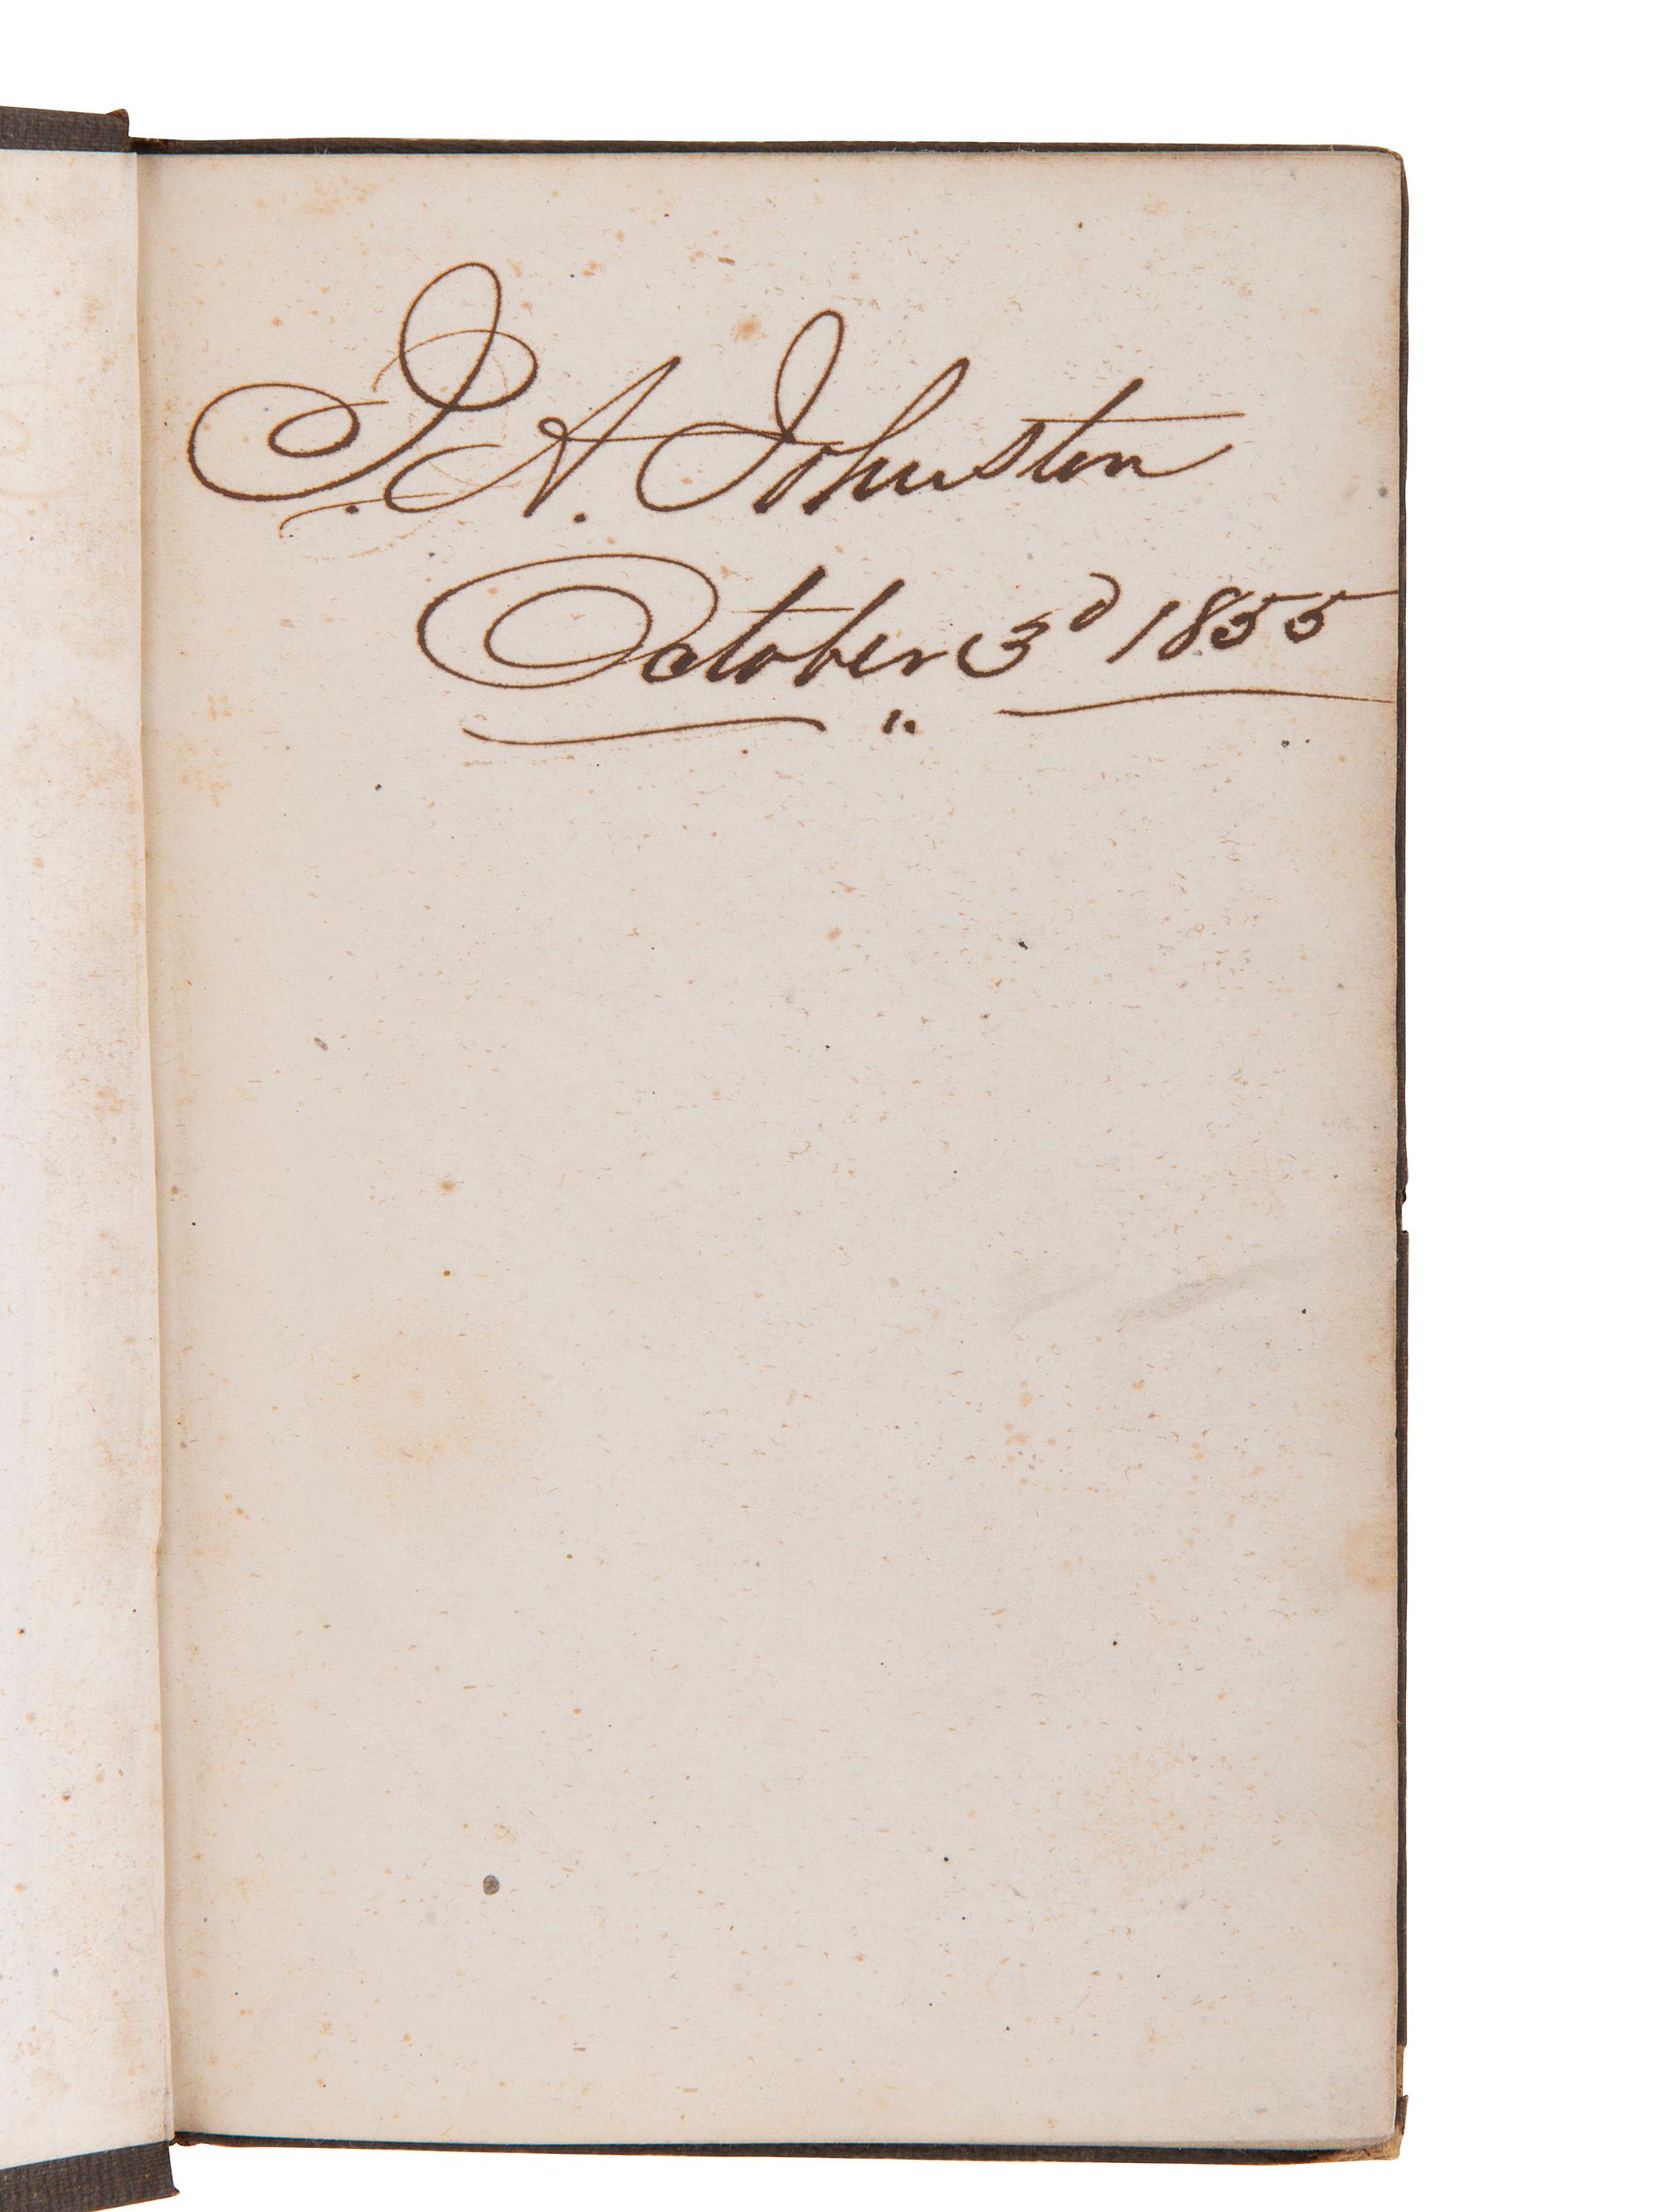 J. A. Johnston
October 3d 1855